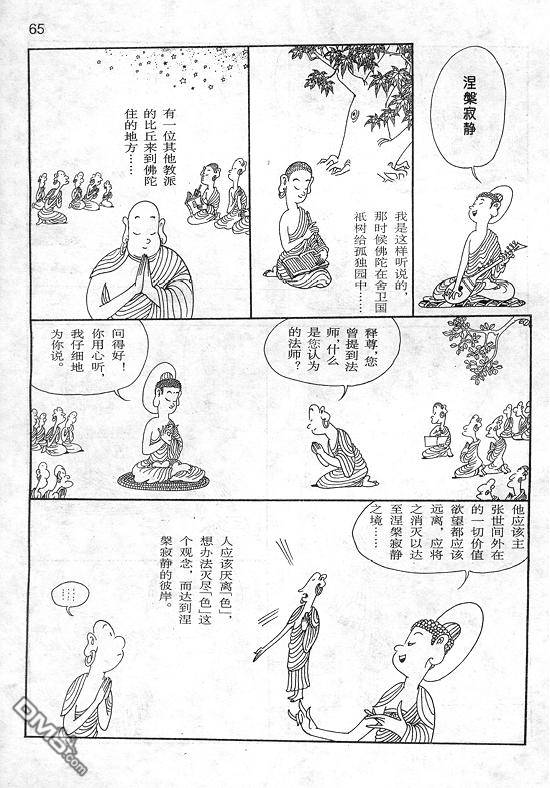 65
涅槃寂静
我是这样听说的，
那时候佛陀在舍卫国
祇树给孤独园中……
有一位其他教派
的比丘来到佛陀
住的地方……
释尊，您
曾提到法
师，什么
是您认为
的法师？
问得好！
你用心听，
我仔细地
为你说。
他应该主
张世间外在
的一切价值
欲望都应该
远离，应将
之消灭以达
至涅槃寂静
之境……
人应该厌离「色」，
想办法灭尽「色」这
个观念，而达到涅
槃寂静的彼岸。
……
DM5.com